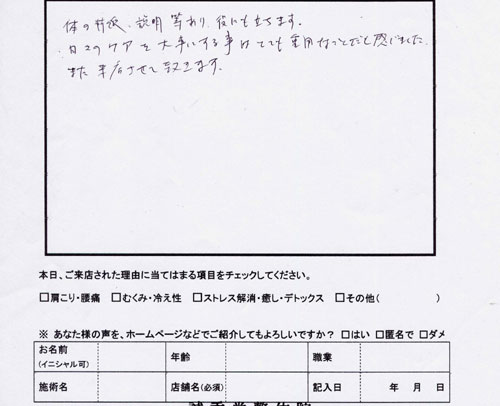 体の状態、説明等あり、役にも立ちます。
日々のケアを大事にする事はとても重要なことだと感じました。
また来店させて頂きます。
本日、ご来店された理由に当てはまる項目をチェックしてください。
□肩こり・腰痛 □むくみ・冷え性 □ストレス解消・癒し・デトックス □その他( )
※ あなた様の声を、ホームページなどでご紹介してもよろしいですか? □はい □匿名で □ダメ
お名前 年齢 職業
(イニシャル可)
施術名 店舗名(必須) 記入日 年 月 日